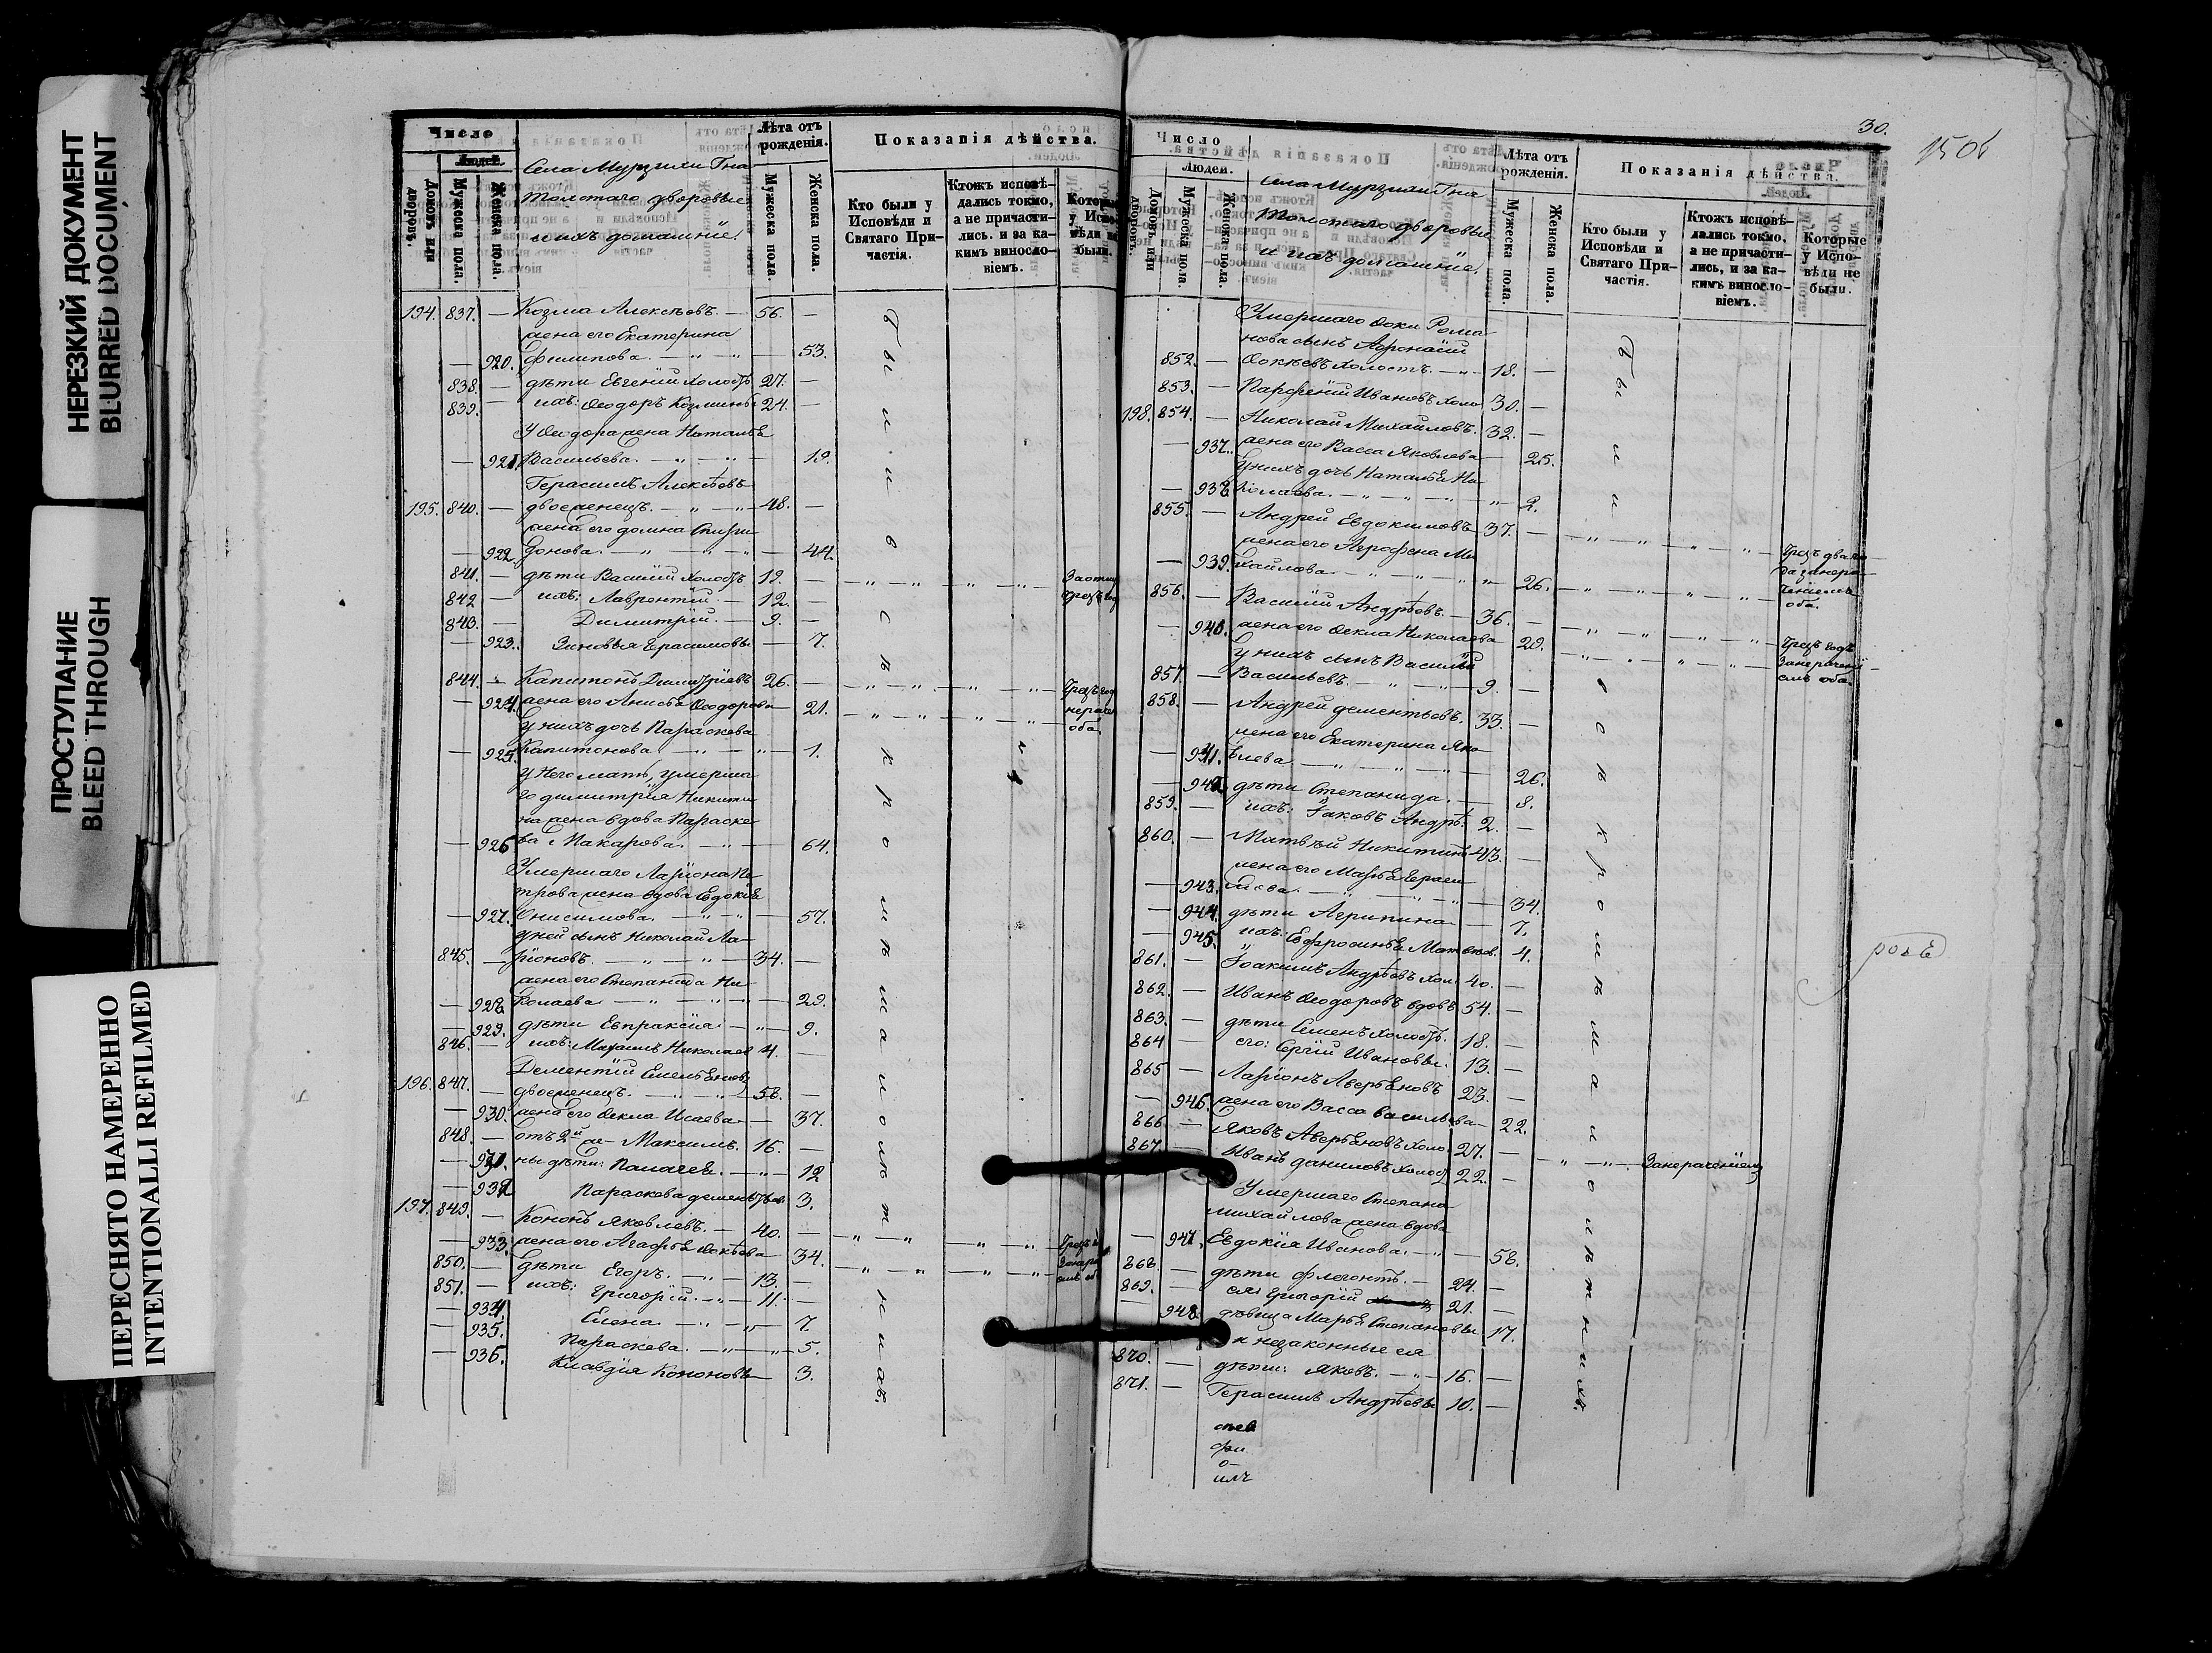 НЕРЕЗКИЙ ДОКУМЕНТ
BLURRED DOCUMENT
ПРОСТУПАНИЕ
BLEED THROUGH
ПЕРЕСНЯТО НАМЕРЕННО
INTENTIONALLI REFILMED
Число
Людей.
Домовъ или дворовъ.
Мужеска пола.
Женска пола.
Села Мурзихи Гна
Толстаго дворовые
и ихъ домашніе.
Лѣта отъ рожденія.
Мужеска пола.
Женска пола.
Показанія дѣйства.
Кто были у Исповѣди и Святаго Причастія.
Ктожъ исповѣдались токмо, а не причастились. и за какимъ винословіемъ.
Которые у Исповѣди не были.
194. 837. — Козма Алексѣевъ. — 56. —
жена его Екатерина
— 920. Филипова. — „ — „ — 53.
838. — дѣти Евгеній холостъ 27. —
839. — ихъ: Ѳеодоръ Козмины 24. —
У Ѳеодора жена Наталья
— 921. Васильева. — „ — „ — 19.
Герасимъ Алексѣевъ
195. 840. — двоеженецъ. — „ — „ — 48. —
жена его Домна Спири
— 922. донова. — „ — „ — „ — 44.
841. — дѣти Василій холостъ 19. —
842 — ихъ: Лаврентій. — 12. —
843. — Димитрій. — 9. —
— 923. Зиновья Герасимовы — 7.
844. — Капитонъ Димитріевъ 26. —
— 924. жена его Анисья Ѳеодорова — 21.
У нихъ дочь Параскева
— 925. Капитонова. — „ — „ — 1.
У него мать, умерша
го Димитрія Никити
на жена вдова Параске
— 926 ва Макарова. — „ — 64.
Умершаго Ларіона Пе
трова жена вдова Евдокія
— 927. Онисимова. — „ — „ — 57.
У ней сынъ Николай Ла
845. — ріоновъ. — „ — „ — 34. —
жена его Степанида Ни
— 928. колаева — „ — „ — „ — 29.
— 929. дѣти Евпраксія. — „ — 9.
846. — ихъ: Михаилъ Николаев 4. —
Дементій Емельяновъ
196. 847. — двоеженецъ. — „ — „ — 58. —
— 930. жена его Ѳекла Исаева — 37.
848. — отъ 2й же- Максимъ. 16. —
— 931. ны дѣти: Палагея. — „ — 12
— 932 Параскева Дементьев. 3.
197. 849. — Кононъ Яковлевъ. — 40. —
— 933. жена его Агафья Ѳокѣева 34.
850. — дѣти Егоръ. — „ — 13. —
851. — ихъ: Григорій. — „ — 11. —
— 934. Елена. — „ — „ — 7.
— 935. Параскева. — „ — „ — 5.
— 936. Клавдія Кононовы — 3.
Были и въ с ѣ к р о м ѣ м а л о л ѣ т н и х ъ.
30.
1506
Число
Людей.
Домовъ или дворовъ.
Мужеска пола.
Женска пола.
Села Мурзихи Гна
Толстаго дворовые
и ихъ домашніе.
Лѣта отъ рожденія.
Мужеска пола.
Женска пола.
Показанія дѣйства.
Кто были у Исповѣди и Святаго Причастія.
Ктожъ исповѣдались токмо, а не причастились, и за какимъ винословіемъ.
Которые у Исповѣди не были.
Умершаго Ѳоки Рома
нова сынъ Аѳонасій
852. — Ѳокѣевъ холостъ. — „ — 18. —
853. — Парфеній Ивановъ холо 30. —
198. 854. — Николай Михайловъ. 32. —
— 937. жена его Васса Яковлева — 25.
У нихъ дочь Наталья Ни
— 938 колаева. — „ — „ — „ 2.
855. — Андрей Евдокимовъ 37. —
жена его Агрофена Ми
— 939. хайлова. — „ — „ — „ 26.
856. — Василій Андрѣевъ. — 36. —
— 940. жена его Ѳекла Николаева 29.
У нихъ сынъ Василій
857. — Васильевъ. — „ — „ — 9. —
858. — Андрей Дементьевъ. 33. —
жена его Екатерина Яко
— 941. влева. — „ — „ — „ — 26.
— 942. дѣти Степанида. — 8.
859. — ихъ: Іаковъ Андрѣ: 2. —
860. — Матвѣй Никитинъ 43. —
жена его Марья Гераси
— 943. мова. — „ — „ — „ — 34.
— 944. дѣти Агрипина — 7.
— 945. ихъ: Ефросинья Матвѣев. 4.
861. — Іоакимъ Андрѣевъ хол. 40. —
862. — Иванъ Ѳеодоровъ вдовъ 54. —
863. — дѣти Семенъ холостъ. 18. —
864 — его: Сергій Ивановы. 13. —
865 — Ларіонъ Аверьяновъ 23. —
— 946. жена его Васса Васильева — 22.
866. — Яковъ Аверьяновъ холо. 27. —
867. — Иванъ Даниловъ холос 22. — „ — „ — . Занераченіемъ
Умершаго Степана
Михайлова жена вдова
— 947. Евдокія Иванова. — „ — 58.
868. — дѣти Флегонтъ. — 24. —
869. — ея: Григорій 21. —
— 948. дѣвица Марья Степановы 17.
и незаконные ея
870. — дѣти: Яковъ. — „ — 16. —
871. — Герасимъ Андрѣевы 10. —